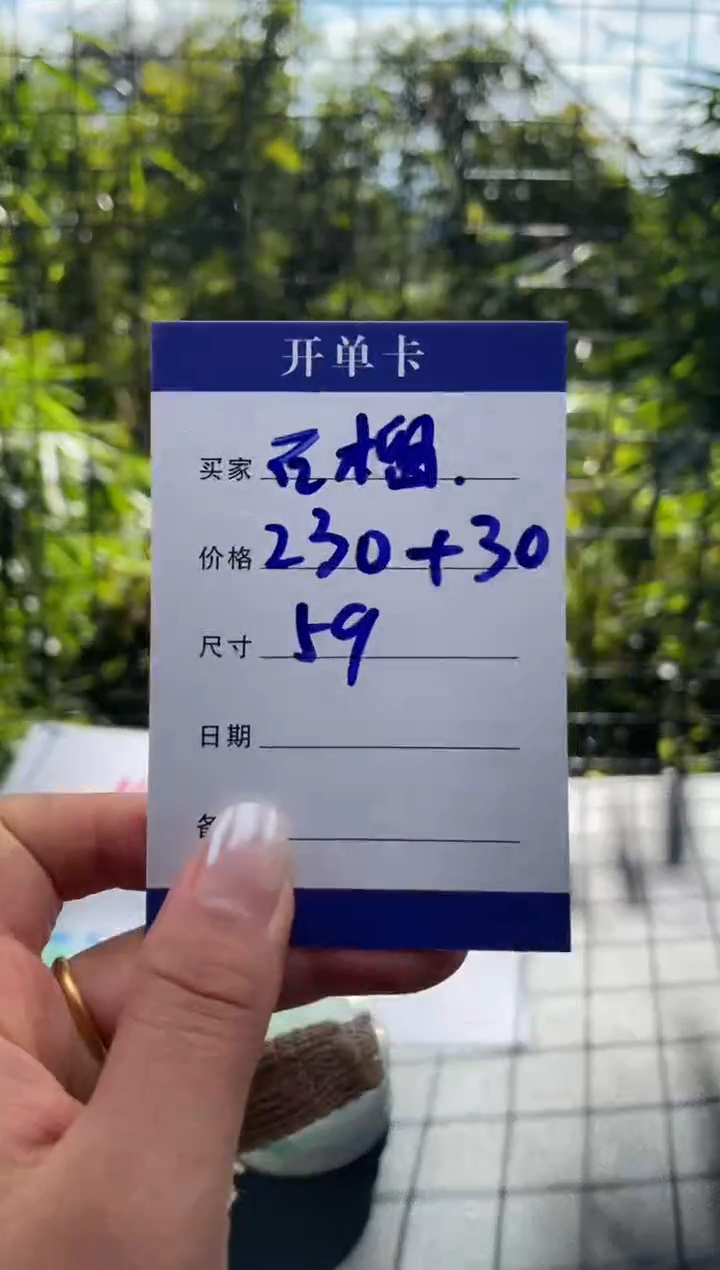 开单卡
买家 石榴.
价格 230+30
尺寸 59
日期
备